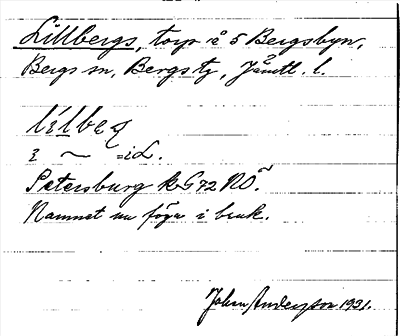 Lillbergs, torp å 5 Bergsbyn,
Bergs sn, Bergs tg, Jämtl. l.
lilbeg
i ~ = i L.
Petersburg k G 72 NO
Namnet nu föga i bruk.
Johan Anderzon 1931.